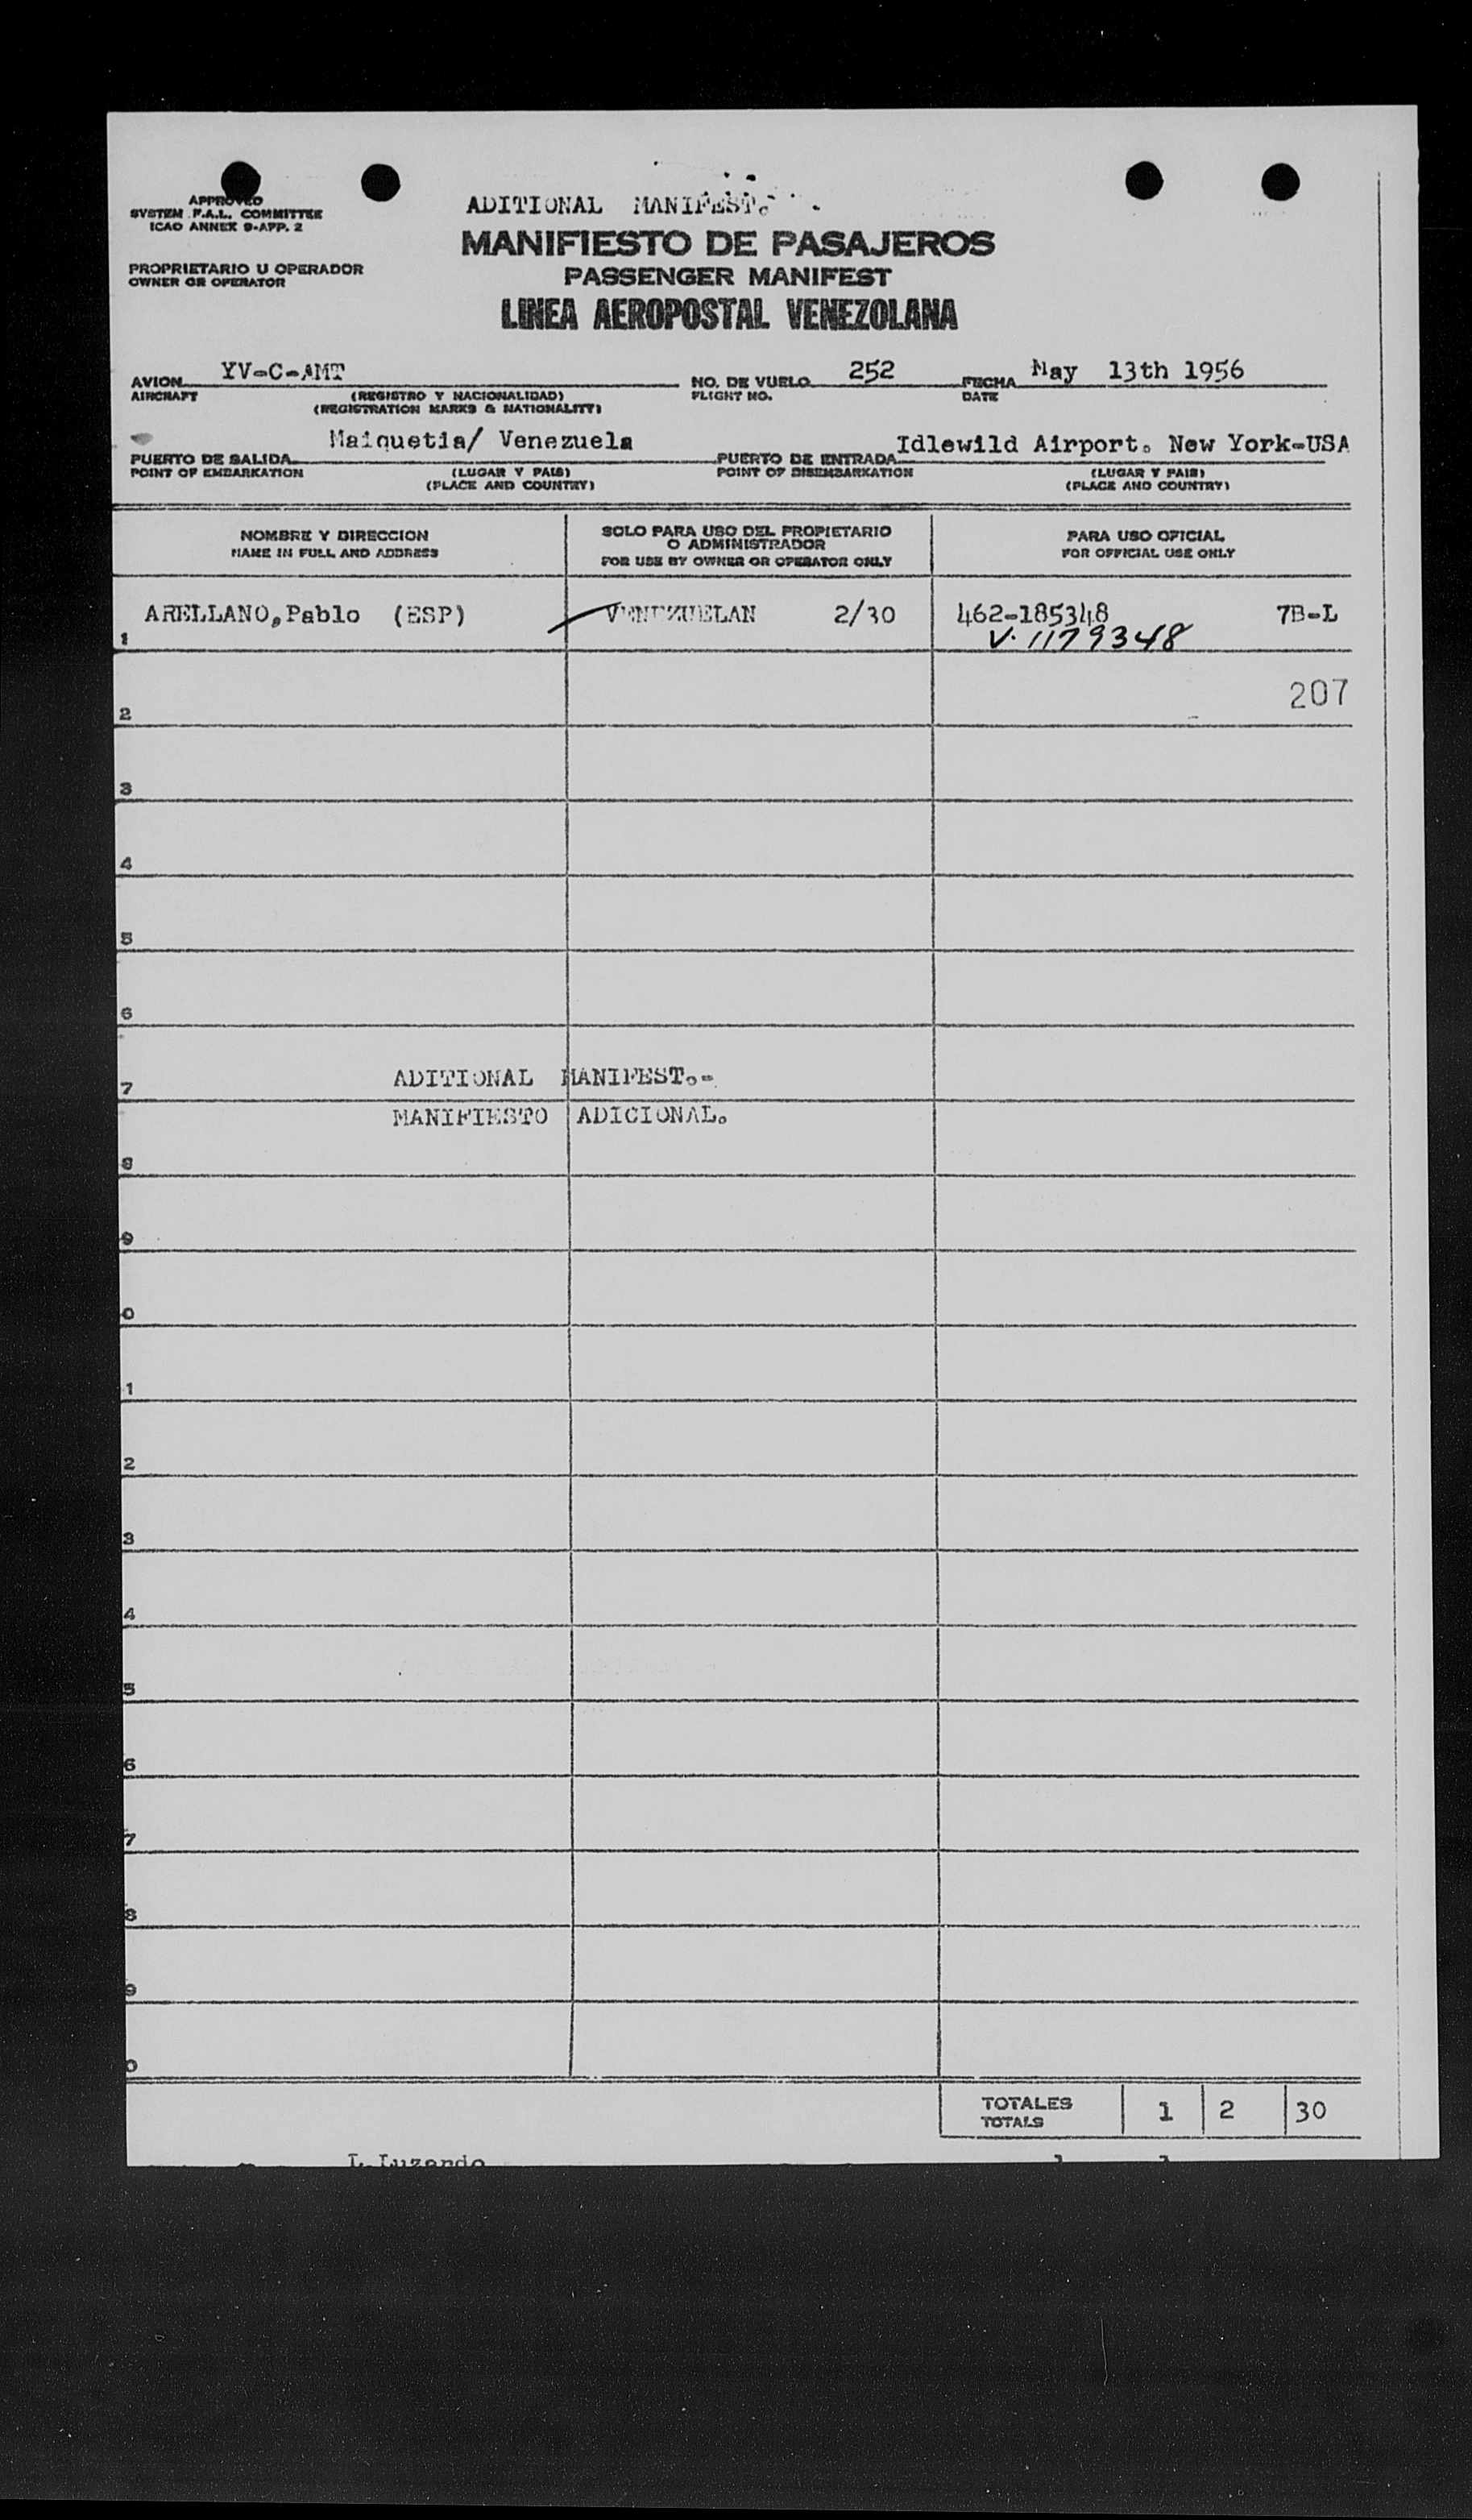 APPROVED
SYSTEM F.A.L. COMMITTEE
ICAO ANNEX 9-APP. 2
ADITIONAL MANIFEST.
MANIFIESTO DE PASAJEROS
PROPRIETARIO U OPERADOR
OWNER OR OPERATOR
PASSENGER MANIFEST
LINEA AEROPOSTAL VENEZOLANA
AVION YV-C-AMT NO. DE VUELO 252 FECHA May 13th 1956
AIRCRAFT (REGISTRO Y NACIONALIDAD) FLIGHT NO. DATE
(REGISTRATION MARKS & NATIONALITY)
PUERTO DE SALIDA Maiquetia/ Venezuela PUERTO DE ENTRADA Idlewild Airport. New York-USA
POINT OF EMBARKATION (LUGAR Y PAIS) POINT OF DISEMBARKATION (LUGAR Y PAIS)
(PLACE AND COUNTRY) (PLACE AND COUNTRY)
NOMBRE Y DIRECCION
NAME IN FULL AND ADDRESS
SOLO PARA USO DEL PROPIETARIO
O ADMINISTRADOR
FOR USE BY OWNER OR OPERATOR ONLY
PARA USO OFICIAL
FOR OFFICIAL USE ONLY
ARELLANO,Pablo (ESP) VENEZUELAN 2/30 462-185348 7B-L
1 V. 1179348
207
2
3
4
5
6
ADITIONAL MANIFEST.-
7
MANIFIESTO ADICIONAL.
8
9
0
1
2
3
4
5
6
7
8
9
0
TOTALES 1 2 30
TOTALS
L.Luzardo